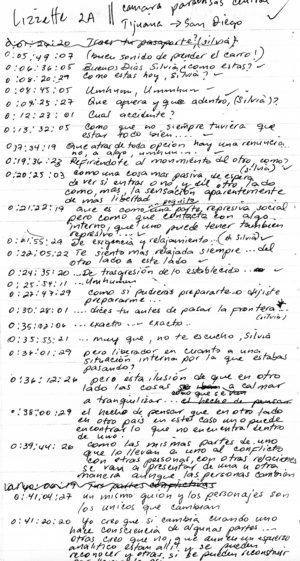 Lizzette 2A || camara parabrisas central
Tijuana → San Diego
0:01:20:20 Traes tu pasaporte? (Silvia)
0:05:49:07 (buen sonido de prender el carro!)
0:06:36:05 Buenos dias Silvia, ¿como estas? ✓
0:08:20:29 Como estas hoy, Silvia? ✓
0:08:45:05 Umhum, Ummhum ✓
0:09:25:27 Que afuera y que adentro, (Silvia)? ✓
0:12:23:01 Cual accidente?
0:13:32:05 Como que no siempre tuviera que
estar todo bien...
0:17:34:19 Que atras de toda opcion hay una renuncia.
no, a algo, umhum...
0:19:36:23 Refiriendote al movimiento del otro, como?
(silvia) ✓
0:20:25:03 como una cosa mas pasiva, de espera
de ver si entras o no, y del otro lado
como, mas, la sensación aparentemente
de mas libertad
0:21:22:19 que es como esa parte represiva social
pero como que contacta con algo
interno, que uno puede tener tambien
represivo... ✓
0:21:55:29 De exigencia y relajamiento. (Silvia) ✓
0:22:05:22 Te siento mas relajada siempre... del
otro lado a este lado ✓
0:24:35:20 ...De trasgresión de lo establecido... ✓
0:25:54:11 ...Umhumm
0:27:47:29 como si pudieras prepararte, o dijiste
prepararme...
0:30:28:01 ... dices tu antes de pasar la frontera...*
(silvia)
0:35:02:06 ...exacto... exacto..
0:35:55:21 ... muy que, no te escucho, Silvia
0:36:01:29 pero liberador en cuanto a una
situación interna por la que estabas
pasando?
0:36:12:26 pero esta ilusión de que en otro
lado las cosas a calmar
a tranquilizar.
0:38:00:29 el hecho de pensar que en otro lado
en otro pais en este caso uno puede
encontrar lo que no encuentra dentro
de uno.
0:39:44:26 como las mismas partes de uno
que lo llevan a uno al conflicto
con otras personas, con otras relaciones
se van a presentar de una u otra
manera aunque las personas cambian
0:41:04:27 un mismo guión y los personajes son
los unicos que cambian
0:41:20:20 Yo creo que si cambia cuando uno
hace consciencia de algunas partes...
otras creo que no, y que aunque un experto
analitico estan alli y se pueden
reconocer y otras, si se pueden reconstruir